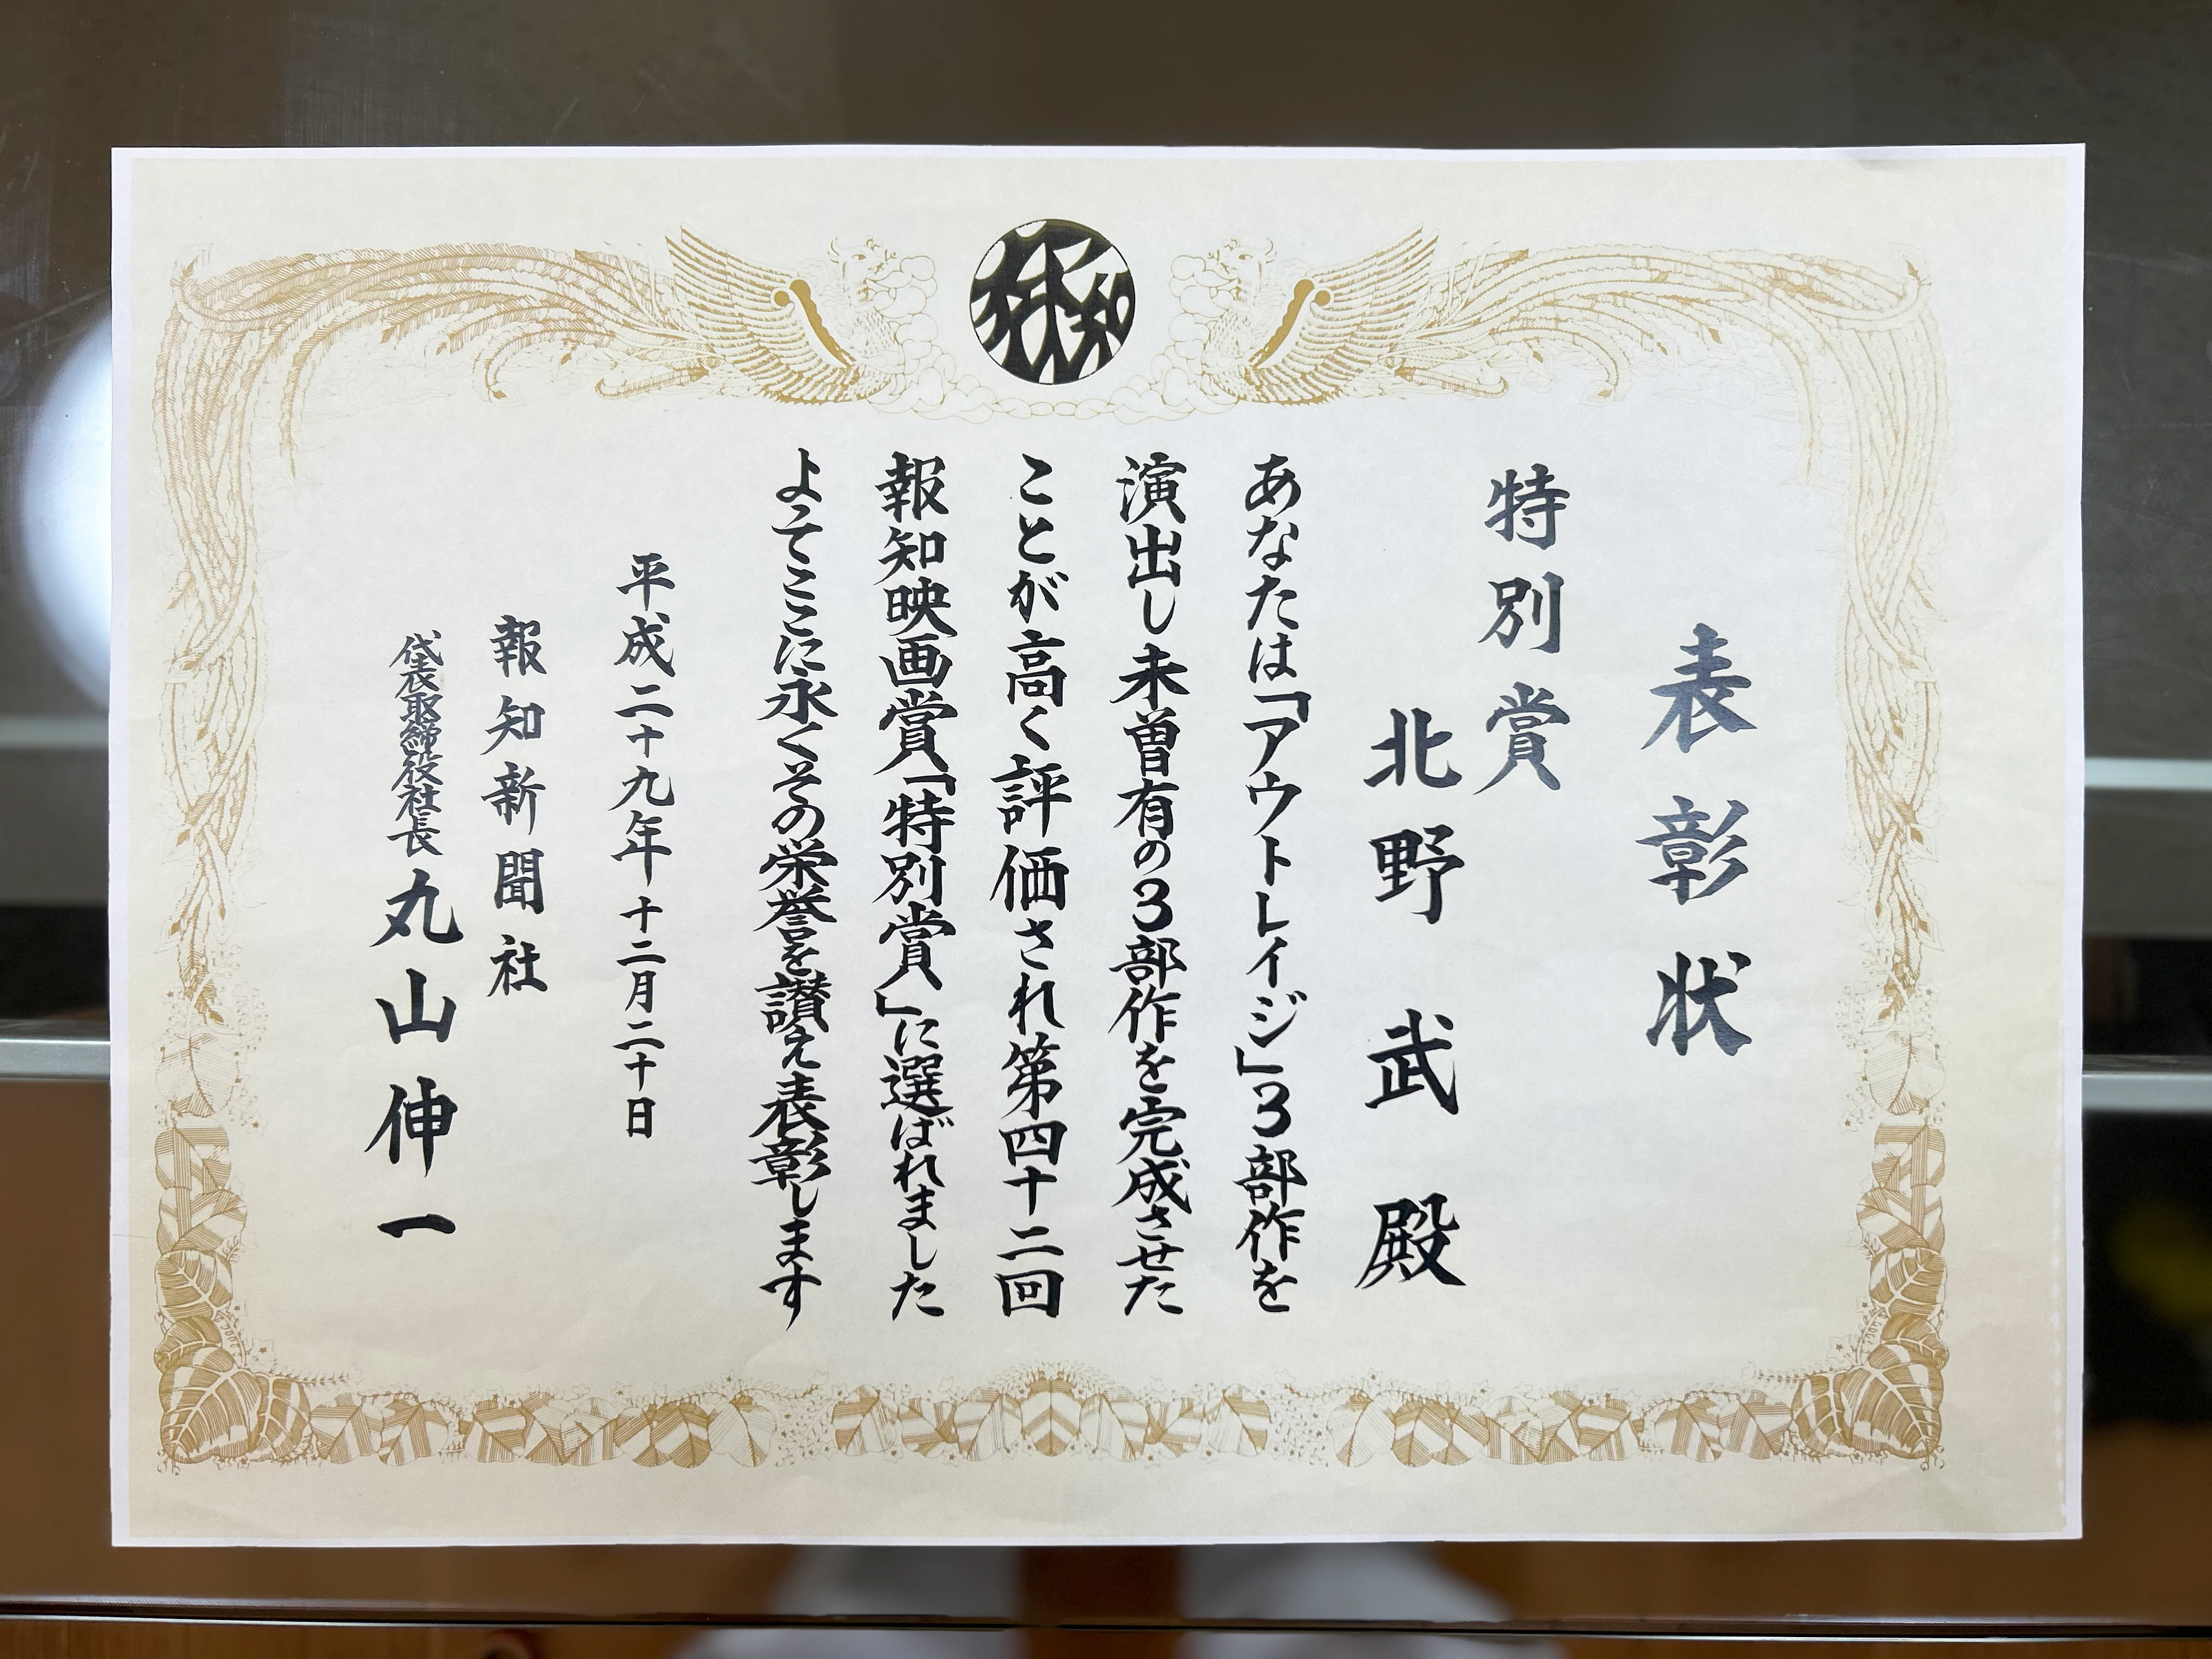 報知
表彰状
特別賞
北野武殿
あなたは「アウトレイジ」3部作を
演出し未曽有の3部作を完成させた
ことが高く評価され第四十二回
報知映画賞「特別賞」に選ばれました
よってここに永くその栄誉を讃え表彰します
平成二十九年十二月二十日
報知新聞社
代表取締役社長 丸山伸一